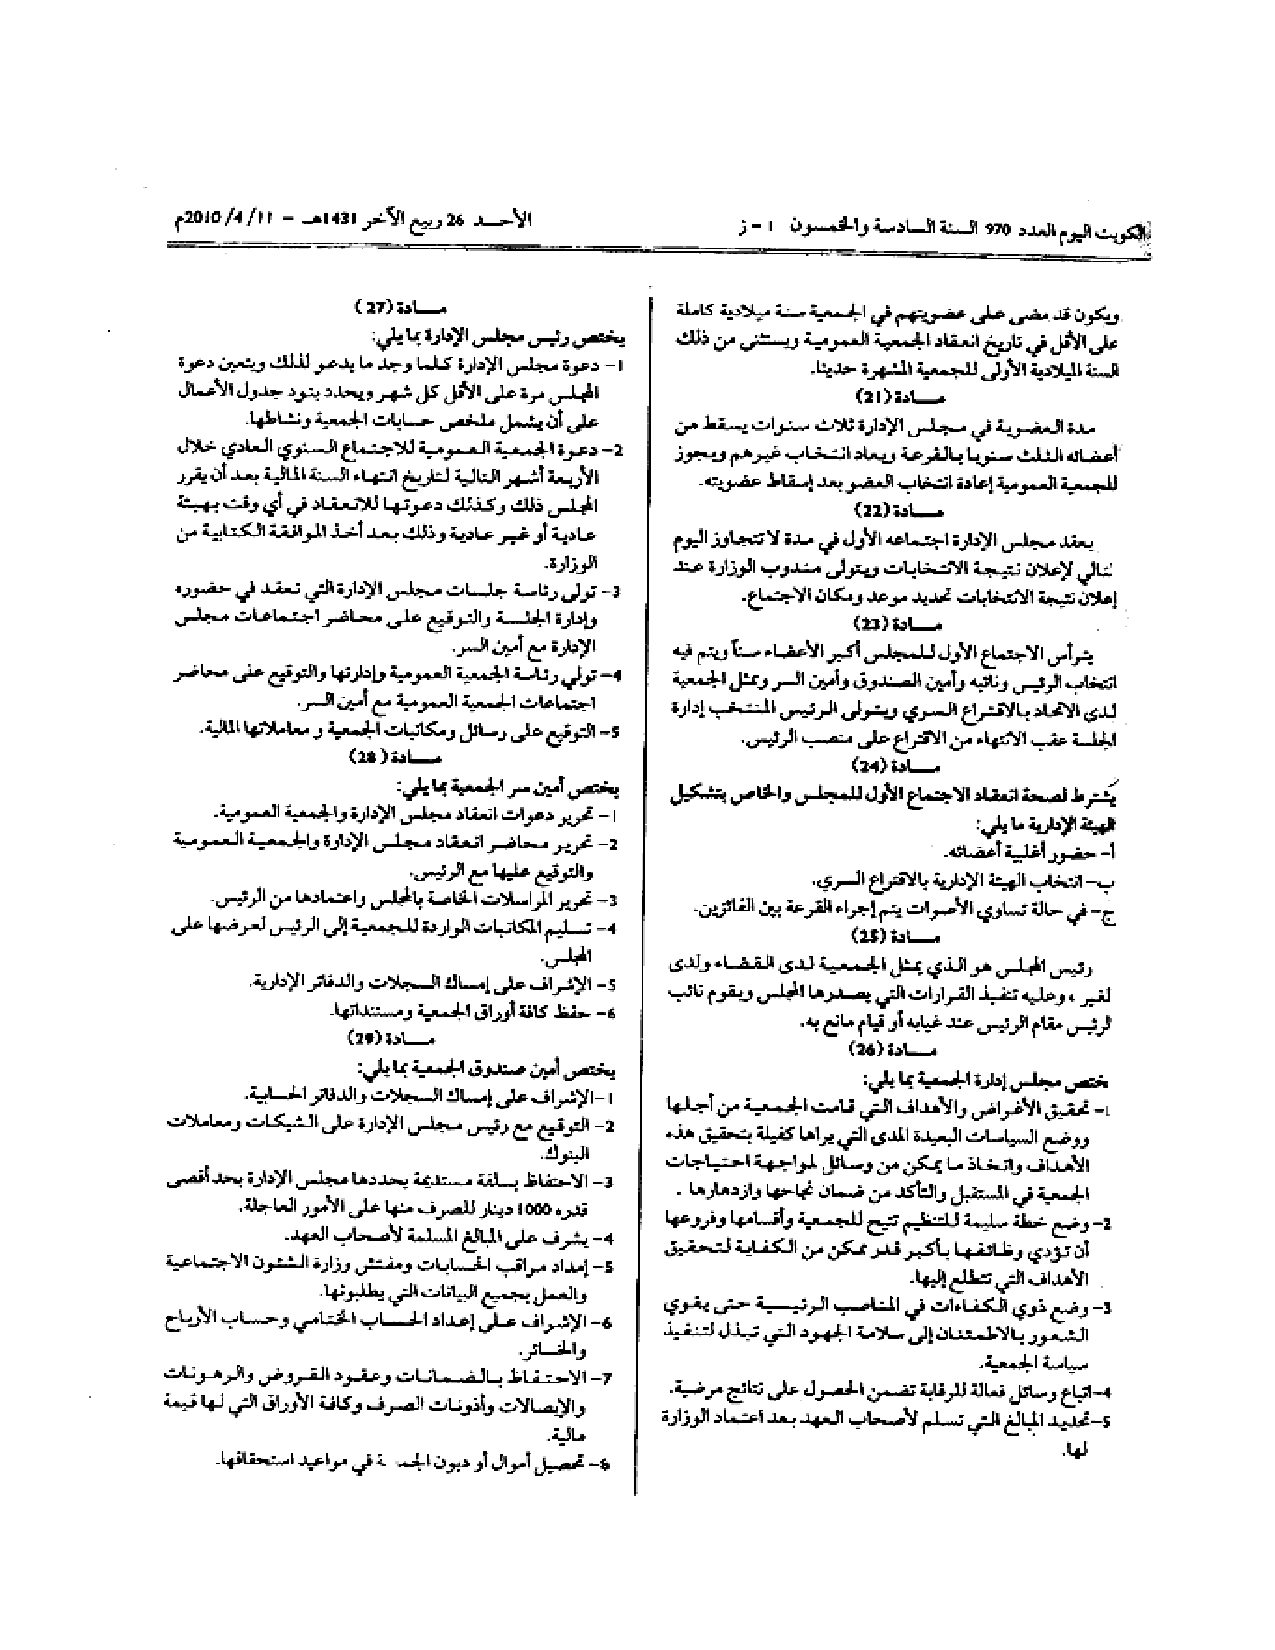 الكويت اليوم العدد 970 السنة السادسة والخمسون ١ - ز
الأحــد 26 ربيع الآخر 1431هـ - ١١ /4 /2010م
ويكون قد مضى على عضويتهم في الجمعية سنة ميلادية كاملة
على الأقل في تاريخ انعقاد الجمعية العمومية ويستثنى من ذلك
السنة الميلادية الأولى للجمعية المشهرة حديثا.
مــادة (21)
مدة العضوية في مجلس الإدارة ثلاث سنوات يسقط من
أعضائه الثلث سنويا بالقرعة ويعاد انتخاب غيرهم ويجوز
للجمعية العمومية إعادة انتخاب العضو بعد إسقاط عضويته.
مــادة (22)
يعقد مجلس الإدارة اجتماعه الأول في مدة لا تتجاوز اليوم
لتالي لإعلان نتيجة الانتخابات ويتولى مندوب الوزارة عند
إعلان نتيجة الانتخابات تحديد موعد ومكان الاجتماع.
مــادة (23)
يترأس الاجتماع الأول للمجلس أكبر الأعضاء سناً ويتم فيه
انتخاب الرئيس ونائبه وأمين الصندوق وأمين السر وممثل الجمعية
لدى الاتحاد بالاقتراع السري ويتولى الرئيس المنتخب إدارة
الجلسة عقب الانتهاء من الاقتراع على منصب الرئيس.
مــادة (24)
يشترط لصحة انعقاد الاجتماع الأول للمجلس والخاص بتشكيل
الهيئة الإدارية ما يلي:
أ- حضور أغلبية أعضائه.
ب- انتخاب الهيئة الإدارية بالاقتراع السري.
ج- في حالة تساوي الأصوات يتم إجراء القرعة بين الفائزين.
مــادة (25)
رئيس المجلس هو الذي يمثل الجمعية لدى القضاء ولدى
لغير، وعليه تنفيذ القرارات التي يصدرها المجلس ويقوم نائب
لرئيس مقام الرئيس عند غيابه أو قيام مانع به.
مــادة (26)
ختص مجلس إدارة الجمعية بما يلي:
١- تحقيق الأغراض والأهداف التي قامت الجمعية من أجلها
ووضع السياسات البعيدة المدى التي يراها كفيلة بتحقيق هذه
الأهداف واتخاذ ما يمكن من وسائل لمواجهة احتياجات
الجمعية في المستقبل والتأكد من ضمان نجاحها وازدهارها .
2- وضع خطة سليمة للتنظيم تتيح للجمعية وأقسامها وفروعها
أن تؤدي وظائفها بأكبر قدر ممكن من الكفاية لتحقيق
الأهداف التي تتطلع إليها.
3- وضع ذوي الكفاءات في المناصب الرئيسية حتى يقوي
الشعور بالاطمئنان إلى سلامة الجهود التي تبذل لتنفيذ
سياسة الجمعية.
4- اتباع وسائل فعالة للرقابة تضمن الحصول على نتائج مرضية.
5- تحديد المبالغ التي تسلم لأصحاب العهد بعد اعتماد الوزارة
لها.
مــادة (27)
يختص رئيس مجلس الإدارة بما يلي:
١- دعوة مجلس الإدارة كلما وجد ما يدعو لذلك ويتعين دعوة
المجلس مرة على الأقل كل شهر ويحدد بنود جدول الأعمال
على أن يشمل ملخص حسابات الجمعية ونشاطها.
2- دعوة الجمعية العمومية للاجتماع السنوي العادي خلال
الأربعة أشهر التالية لتاريخ انتهاء السنة المالية بعد أن يقرر
المجلس ذلك وكذلك دعوتها للانعقاد في أي وقت بهيئة
عادية أو غير عادية وذلك بعد أخذ الموافقة الكتابية من
الوزارة.
3- تولى رئاسة جلسات مجلس الإدارة التي تعقد في حضوره
وإدارة الجلسة والتوقيع على محاضر اجتماعات مجلس
الإدارة مع أمين السر.
4- تولي رئاسة الجمعية العمومية وإدارتها والتوقيع على محاضر
اجتماعات الجمعية العمومية مع أمين السر.
5- التوقيع على رسائل ومكاتبات الجمعية و معاملاتها المالية.
مــادة (28)
يختص أمين سر الجمعية بما يلي:
١- تحرير دعوات انعقاد مجلس الإدارة والجمعية العمومية.
2- تحرير محاضر انعقاد مجلس الإدارة والجمعية العمومية
والتوقيع عليها مع الرئيس.
3- تحرير المراسلات الخاصة بالمجلس واعتمادها من الرئيس.
4- تسليم المكاتبات الواردة للجمعية إلى الرئيس لعرضها على
المجلس.
5- الإشراف على إمساك السجلات والدفاتر الإدارية.
6- حفظ كافة أوراق الجمعية ومستنداتها.
مــادة (29)
يختص أمين صندوق الجمعية بما يلي:
١- الإشراف على إمساك السجلات والدفاتر الحسابية.
2- التوقيع مع رئيس مجلس الإدارة على الشيكات ومعاملات
البنوك.
3- الاحتفاظ بسلفة مستديمة يحددها مجلس الإدارة بحد أقصى
قدره 1000 دينار للصرف منها على الأمور العاجلة.
4- يشرف على المبالغ المسلمة لأصحاب العهد.
5- إمداد مراقب الحسابات ومفتش وزارة الشئون الاجتماعية
والعمل بجميع البيانات التي يطلبونها.
6- الإشراف على إعداد الحساب الختامي وحساب الأرباح
والخسائر.
7- الاحتفاظ بالضمانات وعقود القروض والرهونات
والإيصالات وأذونات الصرف وكافة الأوراق التي لها قيمة
مالية.
8- تحصيل أموال أو ديون في مواعيد استحقاقها.